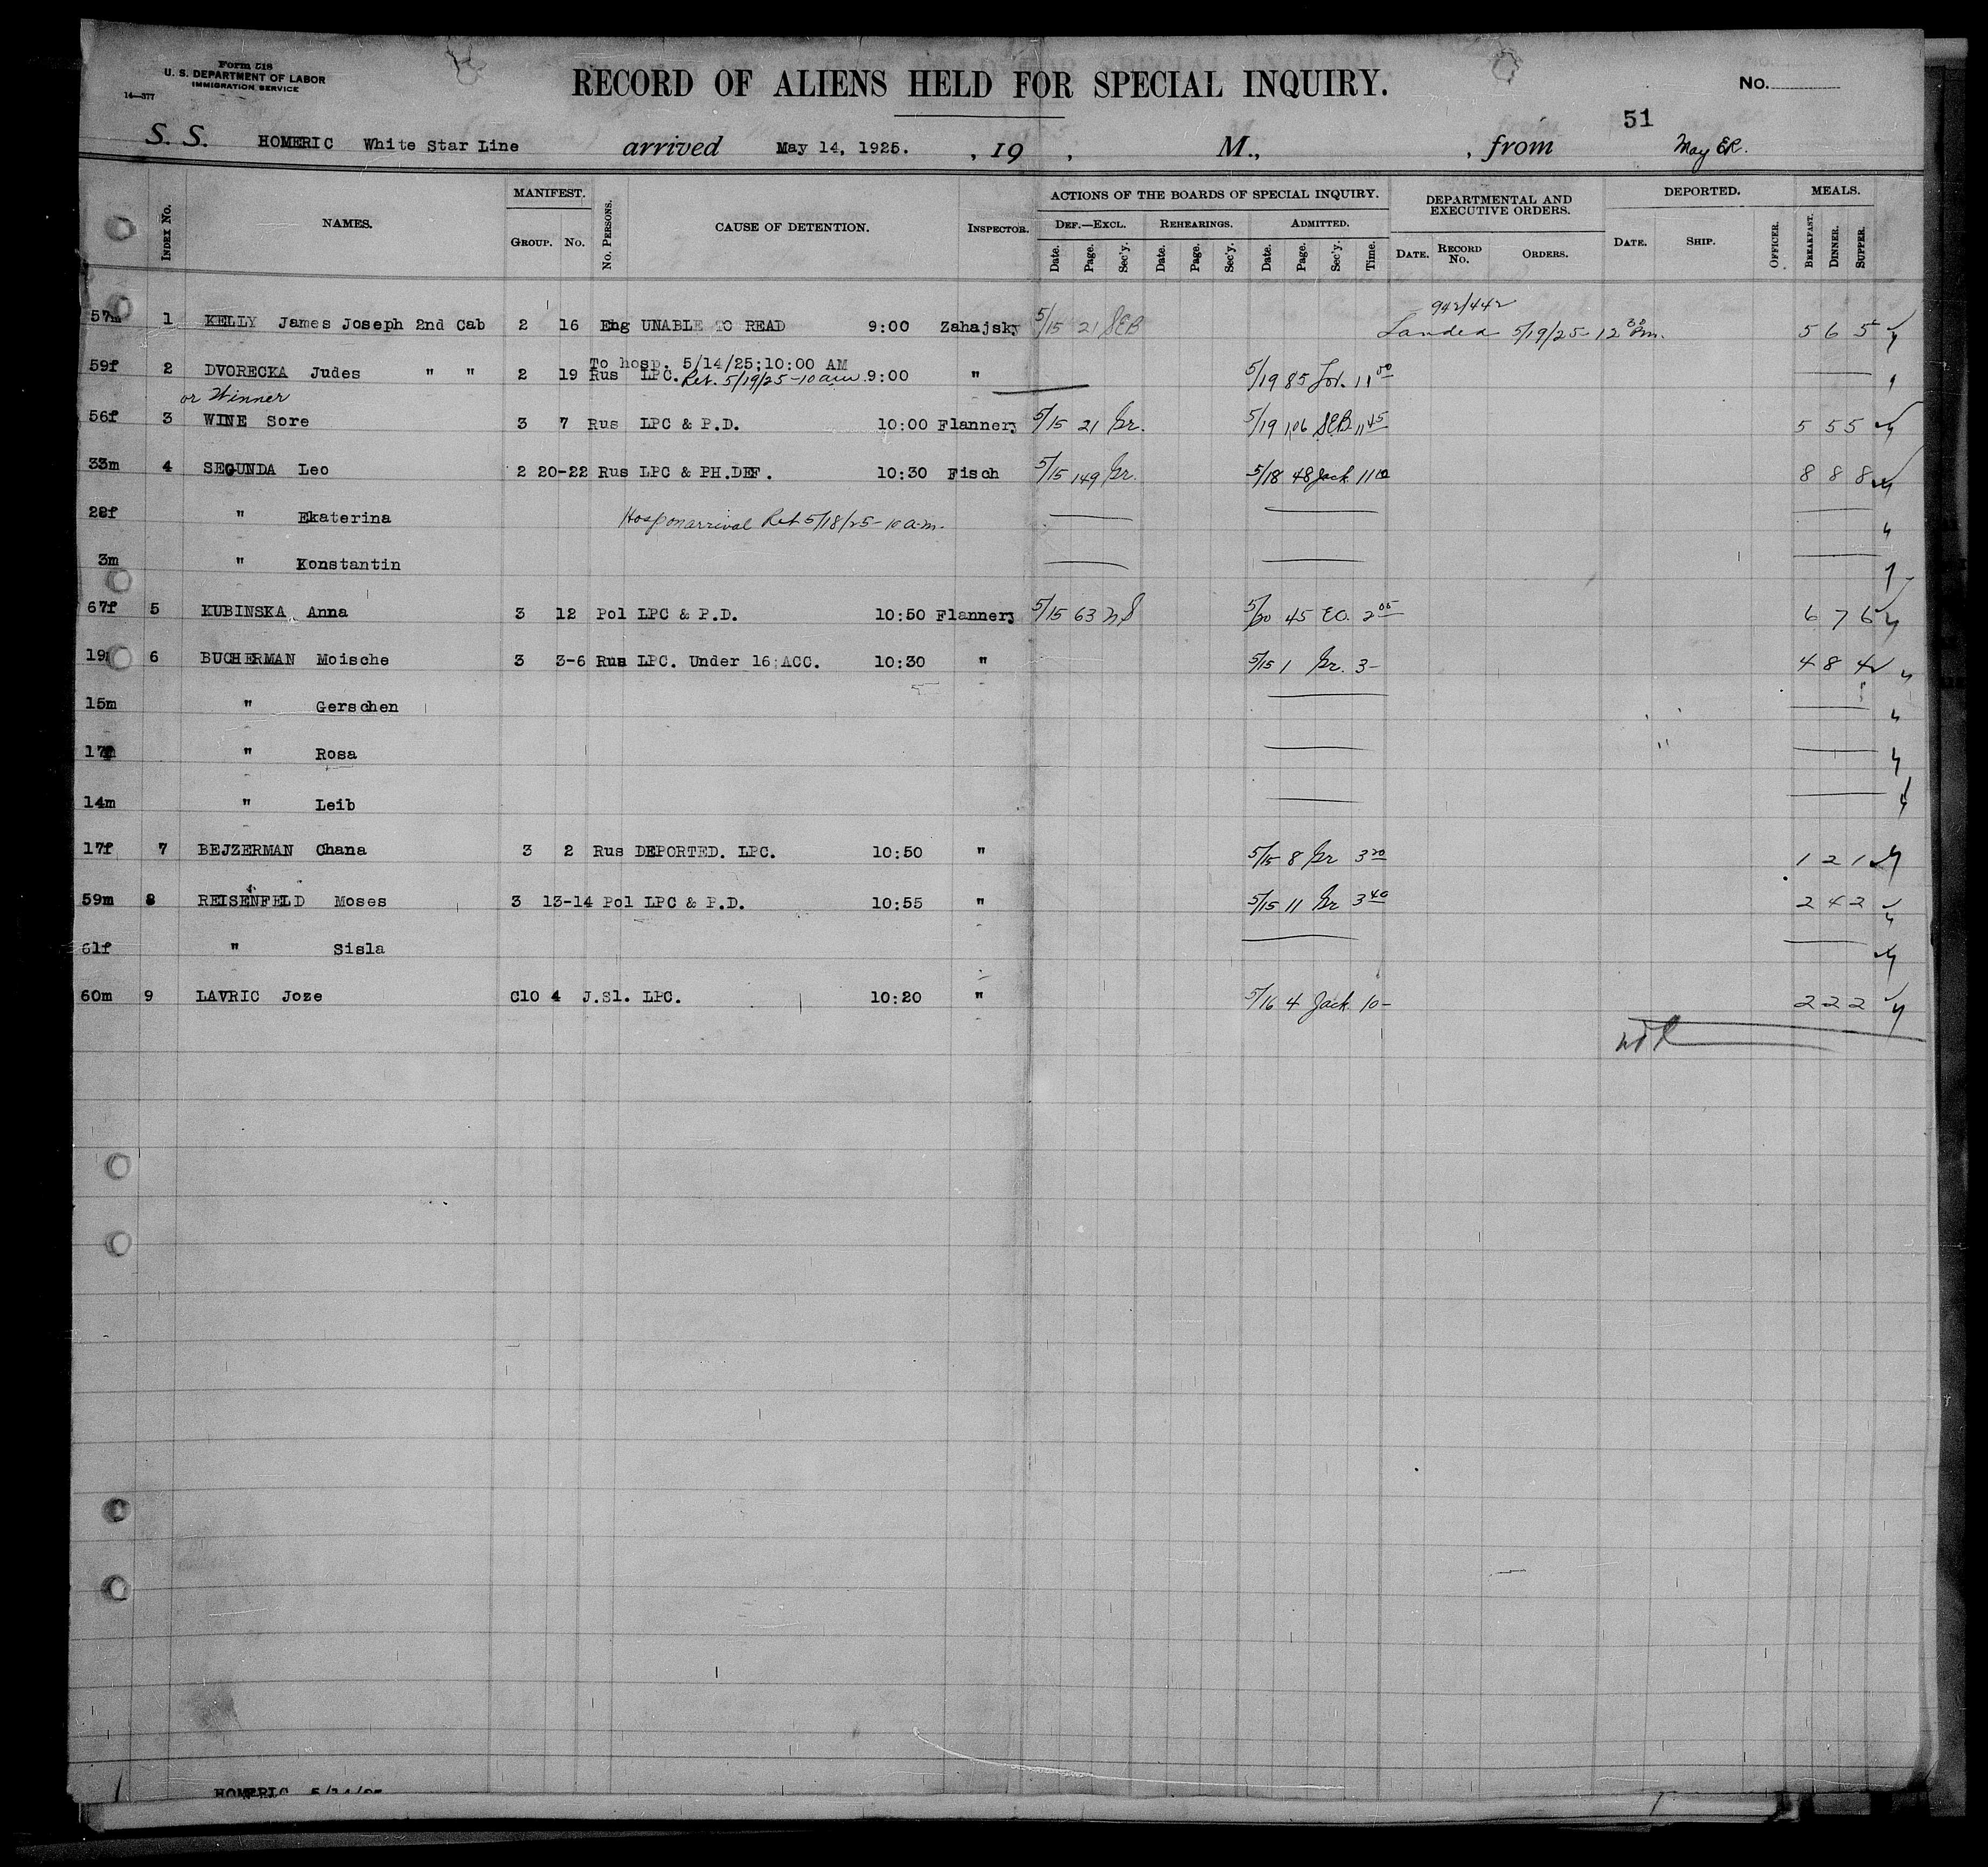 Form 518
U. S. DEPARTMENT OF LABOR
IMMIGRATION SERVICE
14—377
RECORD OF ALIENS HELD FOR SPECIAL INQUIRY.
No.
51
S. S. HOMERIC White Star Line arrived May 14, 1925. , 19 , M., , from May ER.
Index No. NAMES. MANIFEST. Group. No. No. Persons. CAUSE OF DETENTION. Inspector. ACTIONS OF THE BOARDS OF SPECIAL INQUIRY. Def.—Excl. Date. Page. Sec'y. Rehearings. Date. Page. Sec'y. Admitted. Date. Page. Sec'y. Time. DEPARTMENTAL AND EXECUTIVE ORDERS. Date. Record No. Orders. DEPORTED. Date. Ship. Officer. MEALS. Breakfast. Dinner. Supper.
942/442
57m 1 KELLY James Joseph 2nd Cab 2 16 Eng UNABLE TO READ 9:00 Zahajsky 5/15 21 SEB Landed 5/19/25 12 30 Pm. 5 6 5
To hosp. 5/14/25;10:00 AM
59f 2 DVORECKA Judes " " 2 19 Rus LPC. Ret. 5/19/25-10 am. 9:00 " 5/19 85 11 00
or Winner
56f 3 WINE Sore 3 7 Rus LPC & P.D. 10:00 Flannery 5/15 21 Gr. 5/19 106 SEB 11 45 5 5 5
33m 4 SEGUNDA Leo 2 20-22 Rus LPC & PH.DEF. 10:30 Fisch 5/15 149 Gr. 5/18 48 Jack 11 10 8 8 8
28f " Ekaterina Hosp on arrival Ret 5/18/25- 10 a.m.
3m " Konstantin
67f 5 KUBINSKA Anna 3 12 Pol LPC & P.D. 10:50 Flannery 5/15 63 5/20 45 EO. 2 05 6 7 6
19 6 BUCHERMAN Moische 3 3-6 Rus LPC. Under 16;ACC. 10:30 " 5/15 1 Gr. 3- 4 8 4
15m " Gerschen
17 " Rosa
14m " Leib
17f 7 BEJZERMAN Chana 3 2 Rus DEPORTED. LPC. 10:50 " 5/15 8 Gr 3 20 1 2 1
59m 8 REISENFELD Moses 3 13-14 Pol LPC & P.D. 10:55 " 5/15 11 Gr 3 40 2 4 2
61f " Sisla
60m 9 LAVRIC Joze C10 4 J.Sl. LPC. 10:20 " 5/16 4 Jack 10- 2 2 2
HOMERIC 5/14/25